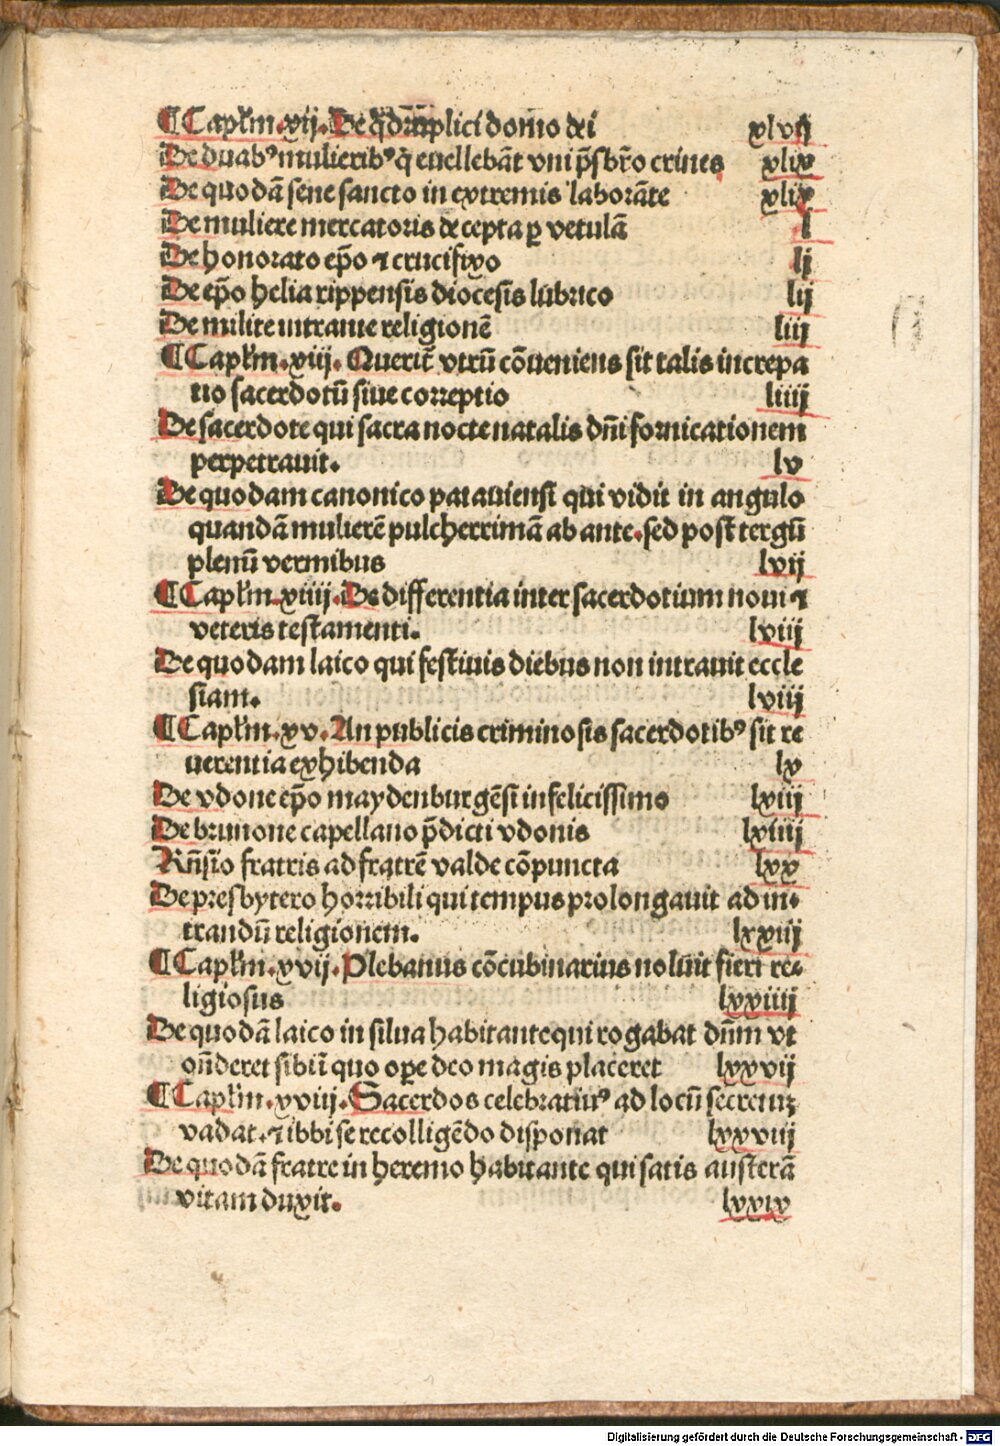 ¶Capłm.xij.De q̄druplici domo dei xlvij
De duabꝰ mulieribꝰ q̄ euellebāt vni p̄sbr̄o crines xlix
De quodā sene sancto in extremis laborāte xlix
De muliere mercatoris decepta ꝑ vetulā l
De honorato ep̄o ⁊ crucifixo lj
De ep̄o helia rippensis diocesis lubrico lij
De milite intrante religionē liij
¶Capłm.xiij. Querit̄ vtrū cōueniens sit talis increpa
tio sacerdotū siue correptio liiij
De sacerdote qui sacra nocte natalis dn̄i fornicationem
perpetrauit. lv
De quodam canonico patauiensi qui vidit in angulo
quandā mulierē pulcherrimā ab ante.sed post tergū
plenū vermibus lvij
¶Capłm.xiiij.De differentia inter sacerdotium noui ⁊
veteris testamenti. lviij
De quodam laico qui festiuis diebus non intrauit eccle
siam. lviij
¶Capłm.xv.An publicis criminosis sacerdotibꝰ sit re
uerentia exhibenda lx
De vdone ep̄o maydenburgēsi infelicissimo lxiij
De brunone capellano p̄dicti vdonis lxiiij
Rn̄sio fratris ad fratrē valde cōpuncta lxx
De presbytero horribili qui tempus prolongauit ad in-
trandū religionem. lxxiij
¶Capłm.xvij.Plebanus cōcubinarius noluit fieri re-
ligiosus lxxiiij
De quodā laico in silua habitante qui rogabat dn̄m vt
on̄deret sibi in̄ quo oꝑe deo magis placeret lxxvij
¶Capłm.xviij.Sacerdos celebraturꝰ ad locū secretuꝫ
vadat.⁊ ibbi se recolligēdo disponat lxxviij
De quodā fratre in heremo habitante qui satis austerā
vitam duxit. lxxix
Digitalisierung gefördert durch die Deutsche Forschungsgemeinschaft - DFG